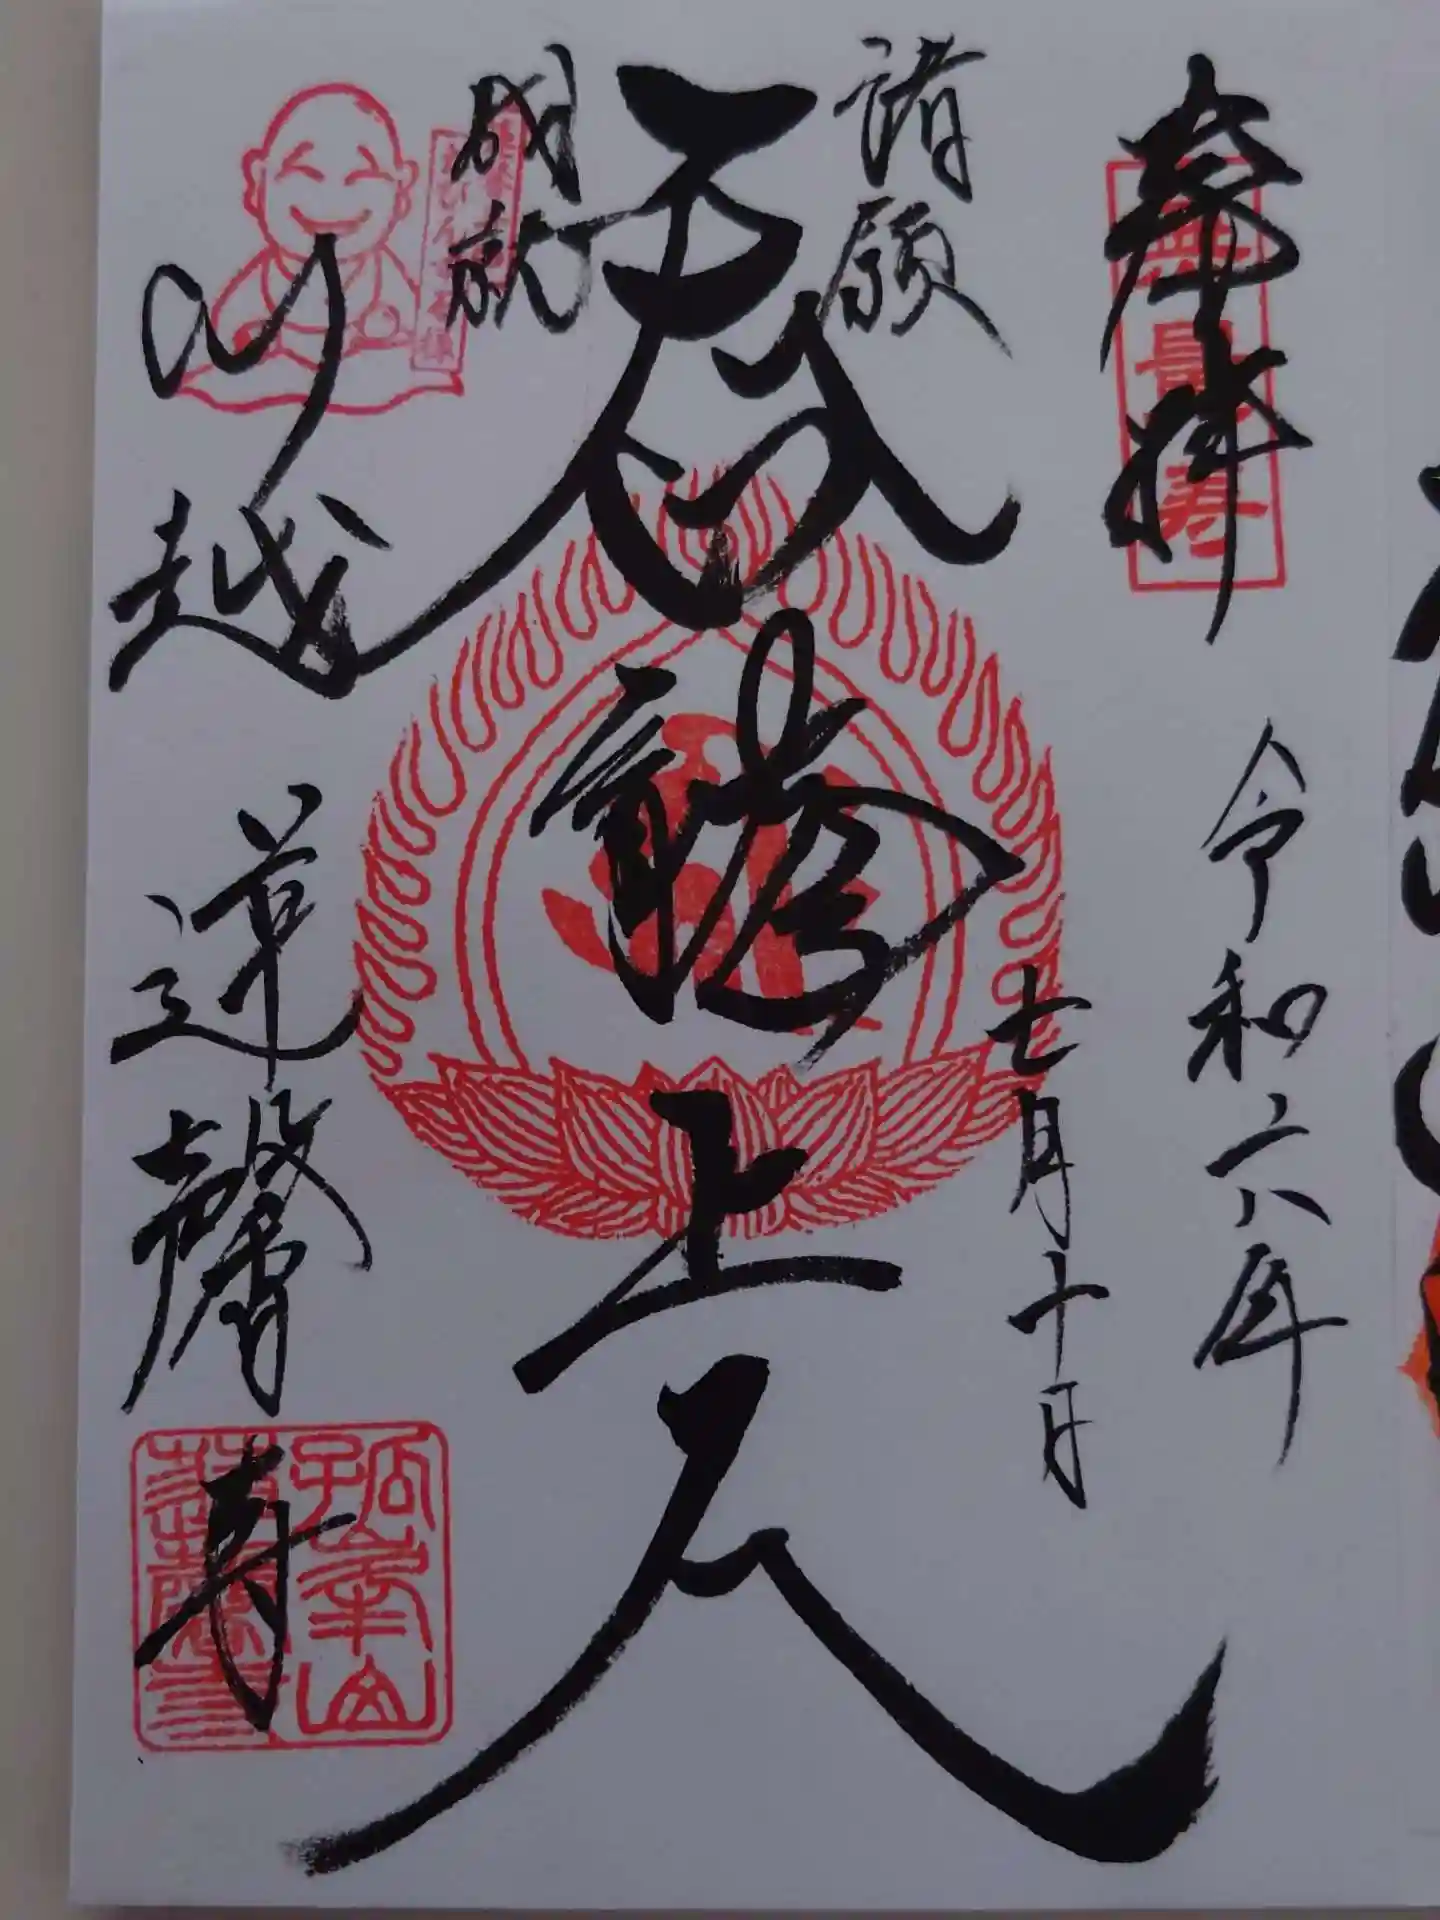 奉拝
無量寿
令和六年
七月十日
諸願
呑龍上人
成就
川越
蓮馨寺
孤峯山